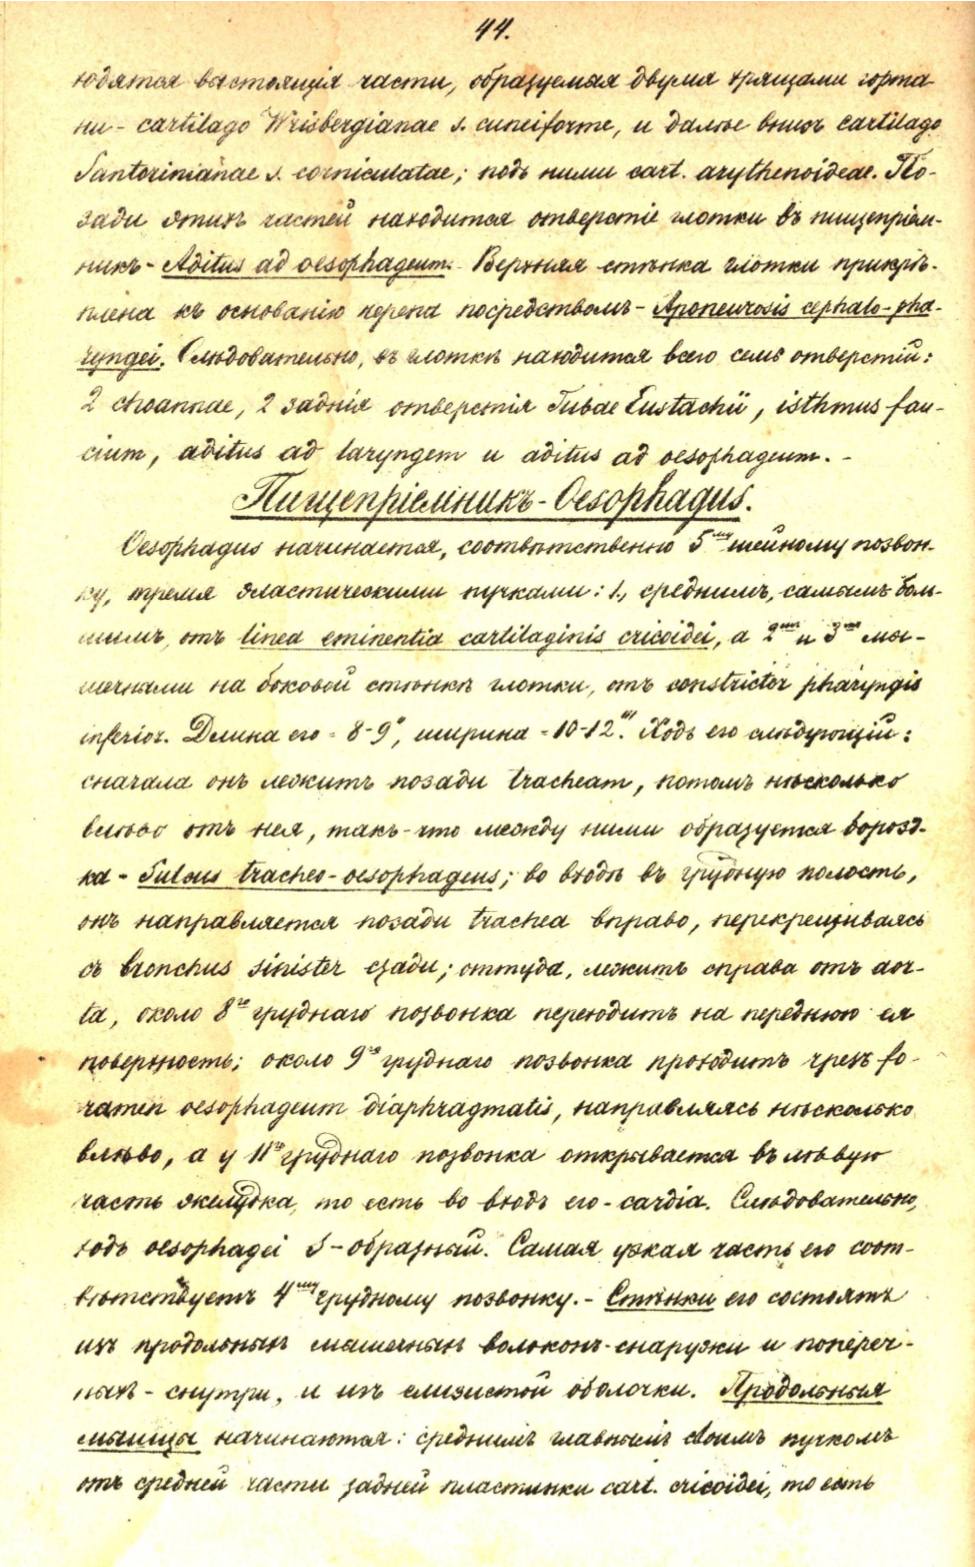 44.
ходятся выстоящія части, образуемая двумя хрящами горта-
ни - cartilago Wrisbergianae s. cuneiforme, и далѣе внизъ cartilago
Santorinianae s. corniculatae; подъ ними cart. arythenoideae. По-
зади этихъ частей находится отверстіе глотки въ пищепріем-
никъ - Aditus ad oesophageum. - Верхняя стѣнка глотки прикрѣ-
плена къ основанію черепа посредствомъ - Aponeurosis cephalo-pha-
ryngei. Слѣдовательно, въ глоткѣ находится всего семь отверстій:
2 choannae, 2 заднія отверстія Tubae Eustachii, isthmus fau-
cium, aditus ad laryngem и aditus ad oesophageum. -
Пищепріемникъ - Oesophagus.
Oesophagus начинается, соотвѣтственно 5му шейному позвон-
ку, тремя эластическими пучками: 1, среднимъ, самымъ боль-
шимъ, отъ linea eminentia cartilaginis cricoidei, а 2мъ и 3мъ мы-
шечнами на боковой стѣнкѣ глотки, отъ constrictor pharyngis
inferior. Длина его = 8-9", ширина = 10-12'''. Ходъ его слѣдующій:
сначала онъ лежитъ позади tracheam, потомъ нѣсколько
влѣво отъ нея, такъ-что между ними образуется борозд-
ка - Sulcus tracheo-oesophageus; во входѣ въ грудную полость,
онъ направляется позади trachea вправо, перекрещиваясь
съ bronchus sinister сзади; оттуда, лежитъ справа отъ aor-
ta, около 8го груднаго позвонка переходитъ на переднюю ея
поверхность; около 9го груднаго позвонка проходитъ чрезъ fo-
ramen oesophageum diaphragmatis, направляясь нѣсколько
влѣво, а у 11го груднаго позвонка открывается въ лѣвую
часть желудка, то есть во входъ его - cardia. Слѣдовательно,
ходъ oesophagei S-образный. Самая узкая часть его соот-
вѣтствуетъ 4му грудному позвонку. - Стѣнки его состоятъ
изъ продольныхъ мышечныхъ волоконъ - снаружи и попереч-
ныхъ - снутри, и изъ слизистой оболочки. Продольныя
мышцы начинаются: среднимъ главнымъ своимъ пучкомъ
отъ средней части задней пластинки cart. cricoidei, то есть